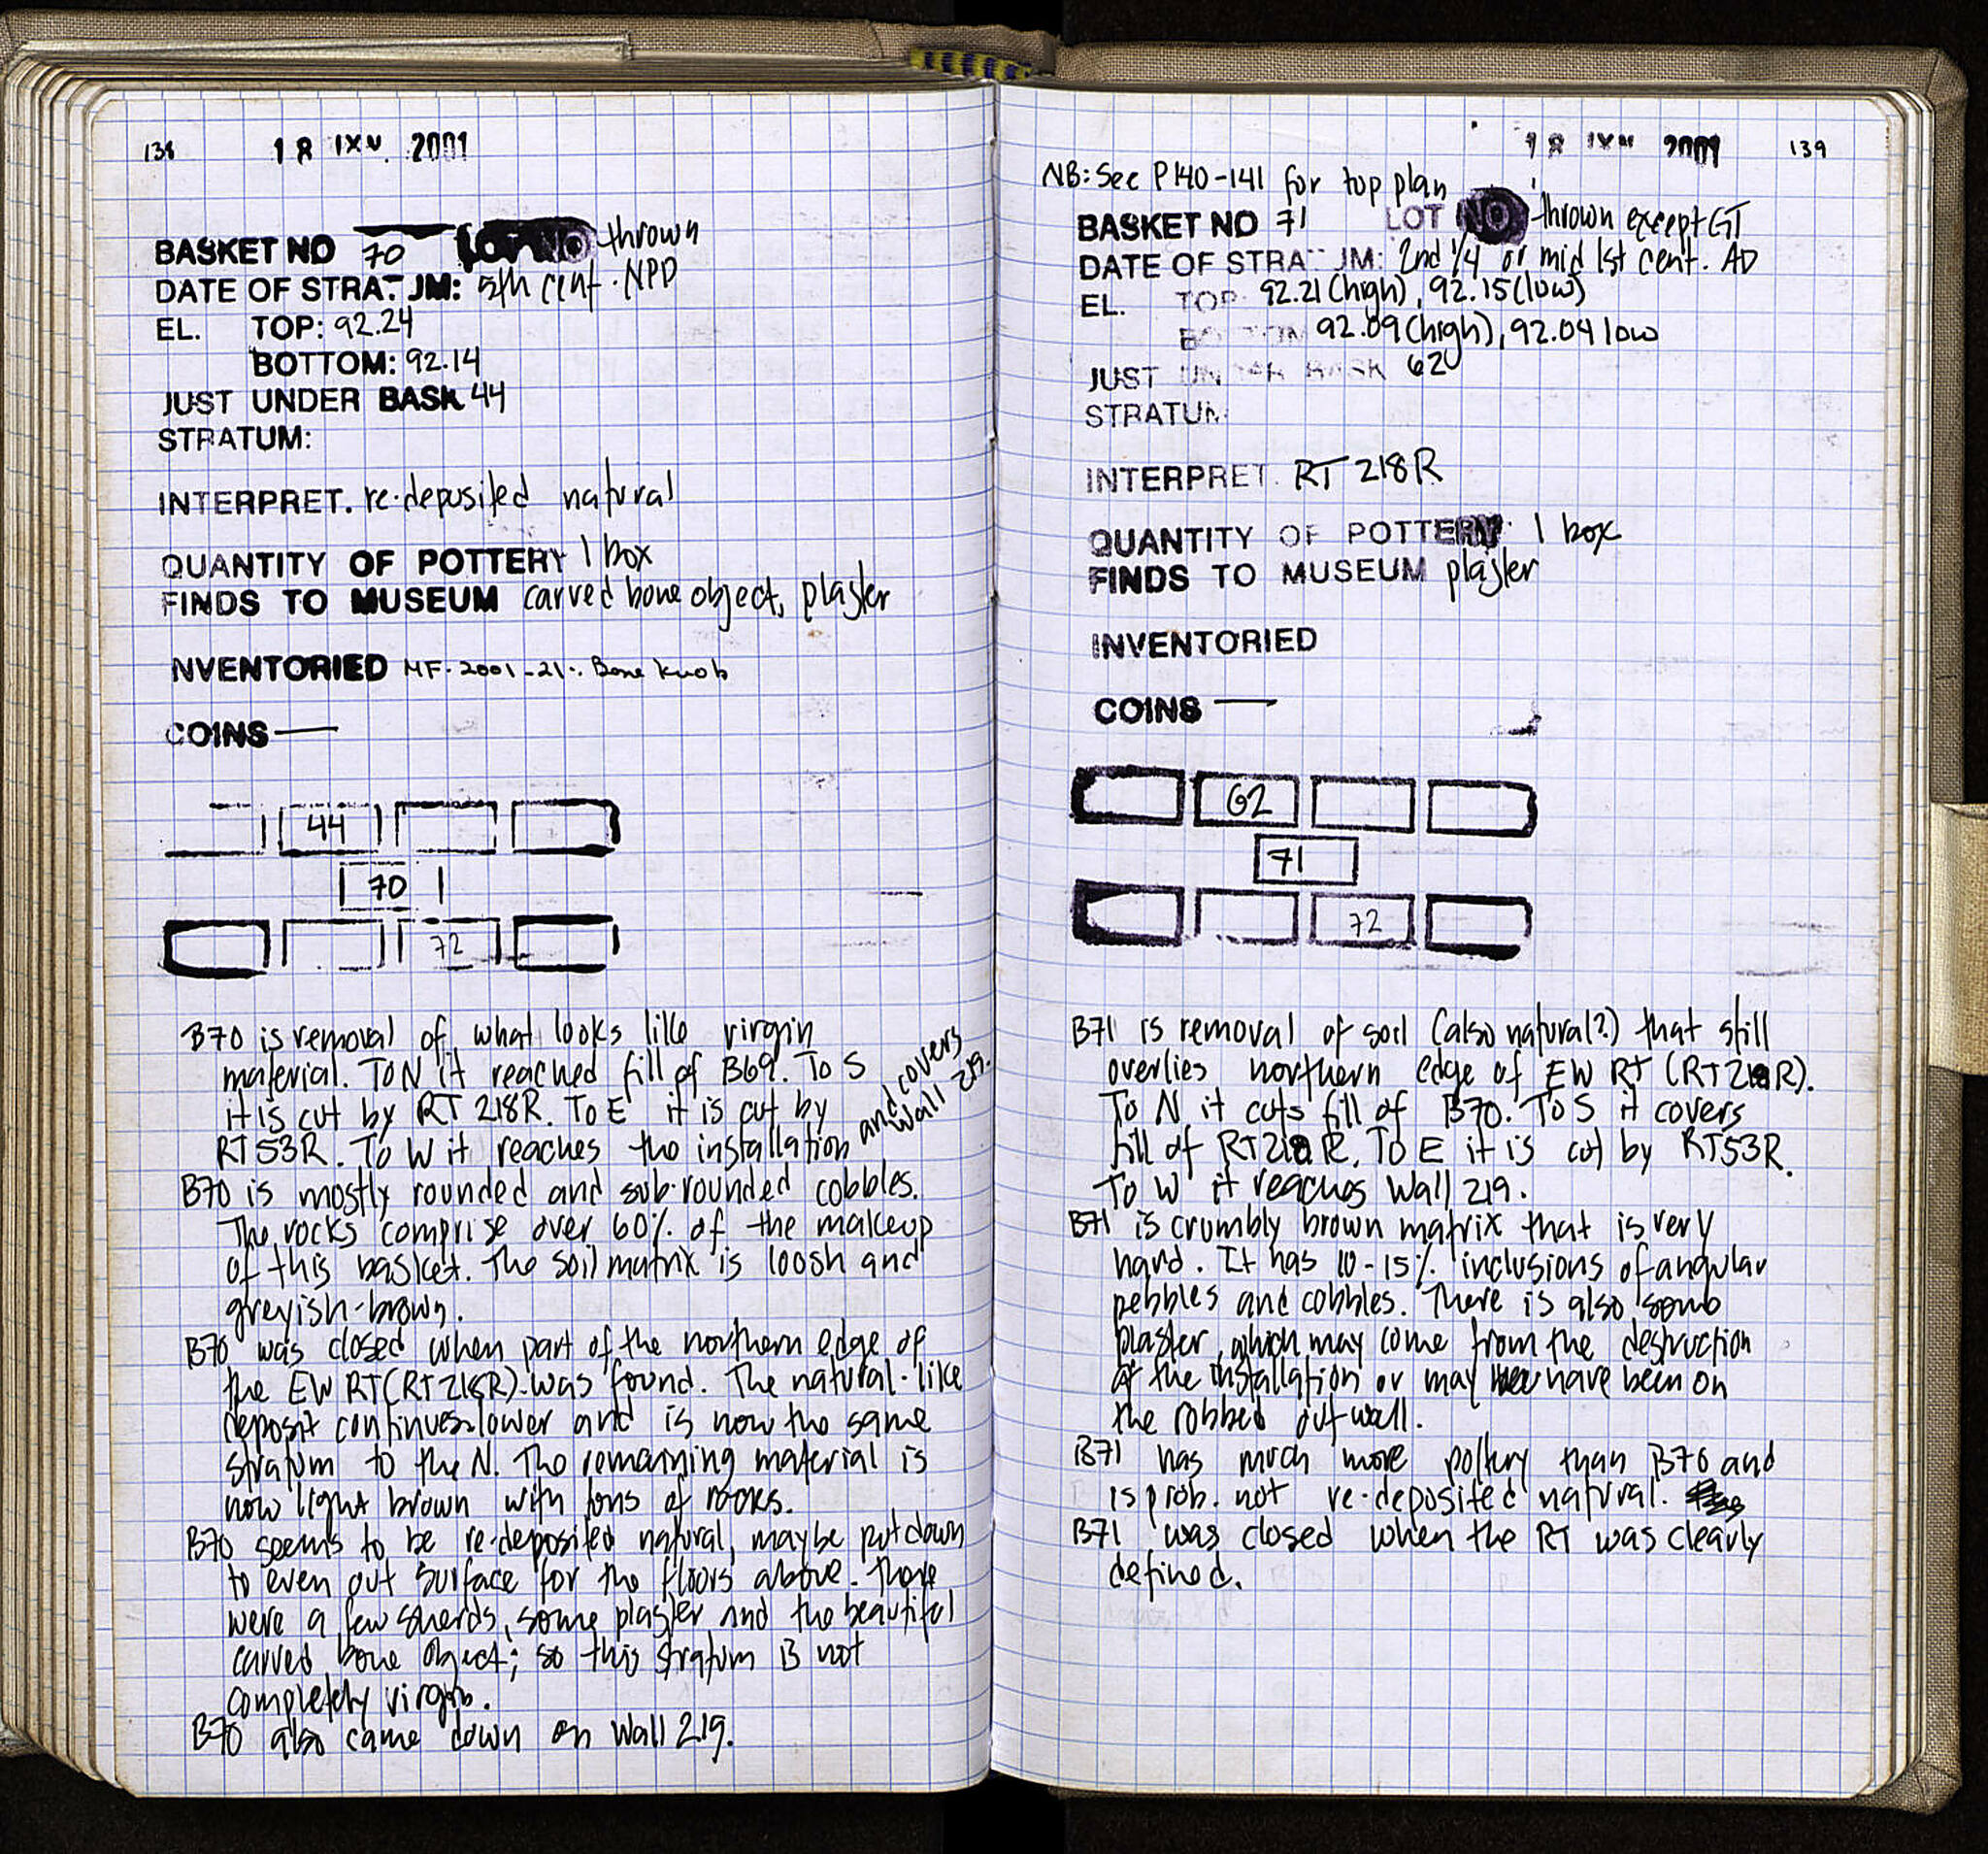 138
18 IXN. 2001
BASKET NO 70 LOT NO thrown
DATE OF STRAT JM: 5th cent. NPD
EL. TOP: 92.24
BOTTOM: 92.14
JUST UNDER BASK 44
STRATUM:
INTERPRET. re-deposited natural
QUANTITY OF POTTERY 1 box
FINDS TO MUSEUM carved bone object, plaster
NVENTORIED MF-2001-21: Bone knob
COINS —
44
70
72
B70 is removal of what looks like virgin
material. To N it reached fill of B69. To S
it is cut by RT 218R. To E it is cut by
RT53R. To W it reaches the installation and covers
Wall 219.
B70 is mostly rounded and sub-rounded cobbles.
The rocks comprise over 60% of the makeup
of this basket. The soil matrix is loosh and
greyish-brown.
B70 was closed when part of the northern edge of
the EW RT (RT 218R) was found. The natural-like
deposit continues lower and is now the same
stratum to the N. The remaining material is
now light brown with tons of rocks.
B70 seems to be re-deposited natural, maybe put down
to even out surface for the floors above. There
were a few sherds, some plaster and the beautiful
carved bone object; so this stratum is not
completely virgin.
B70 also came down on Wall 219.
18 2001 139
NB: See P140-141 for top plan
BASKET NO 71 LOT NO thrown except GT
DATE OF STRA JM: 2nd 1/4 or mid 1st cent. AD
EL. TOP 92.21 (high), 92.15 (low)
BOTTOM 92.09 (high), 92.04 low
JUST UNDER BASK 62
STRATUM
INTERPRET. RT 218R
QUANTITY OF POTTERY 1 box
FINDS TO MUSEUM plaster
INVENTORIED
COINS —
62
71
72
B71 is removal of soil (also natural?) that still
overlies northern edge of EW RT (RT218R).
To N it cuts fill of B70. To S it covers
fill of RT218R. To E it is cut by RT53R.
To W it reaches Wall 219.
B71 is crumbly brown matrix that is very
hard. It has 10-15% inclusions of angular
pebbles and cobbles. There is also some
plaster, which may come from the destruction
of the installation or may have been on
the robbed out wall.
B71 has much more pottery than B70 and
is prob. not re-deposited natural.
B71 was closed when the RT was clearly
defined.